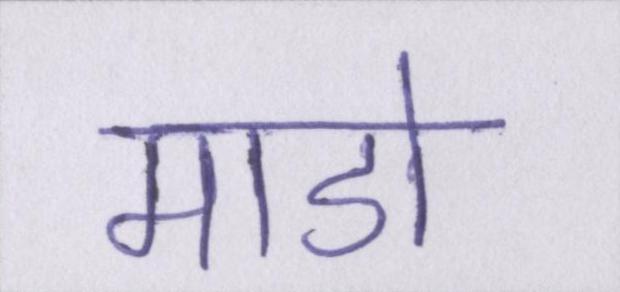 माडो